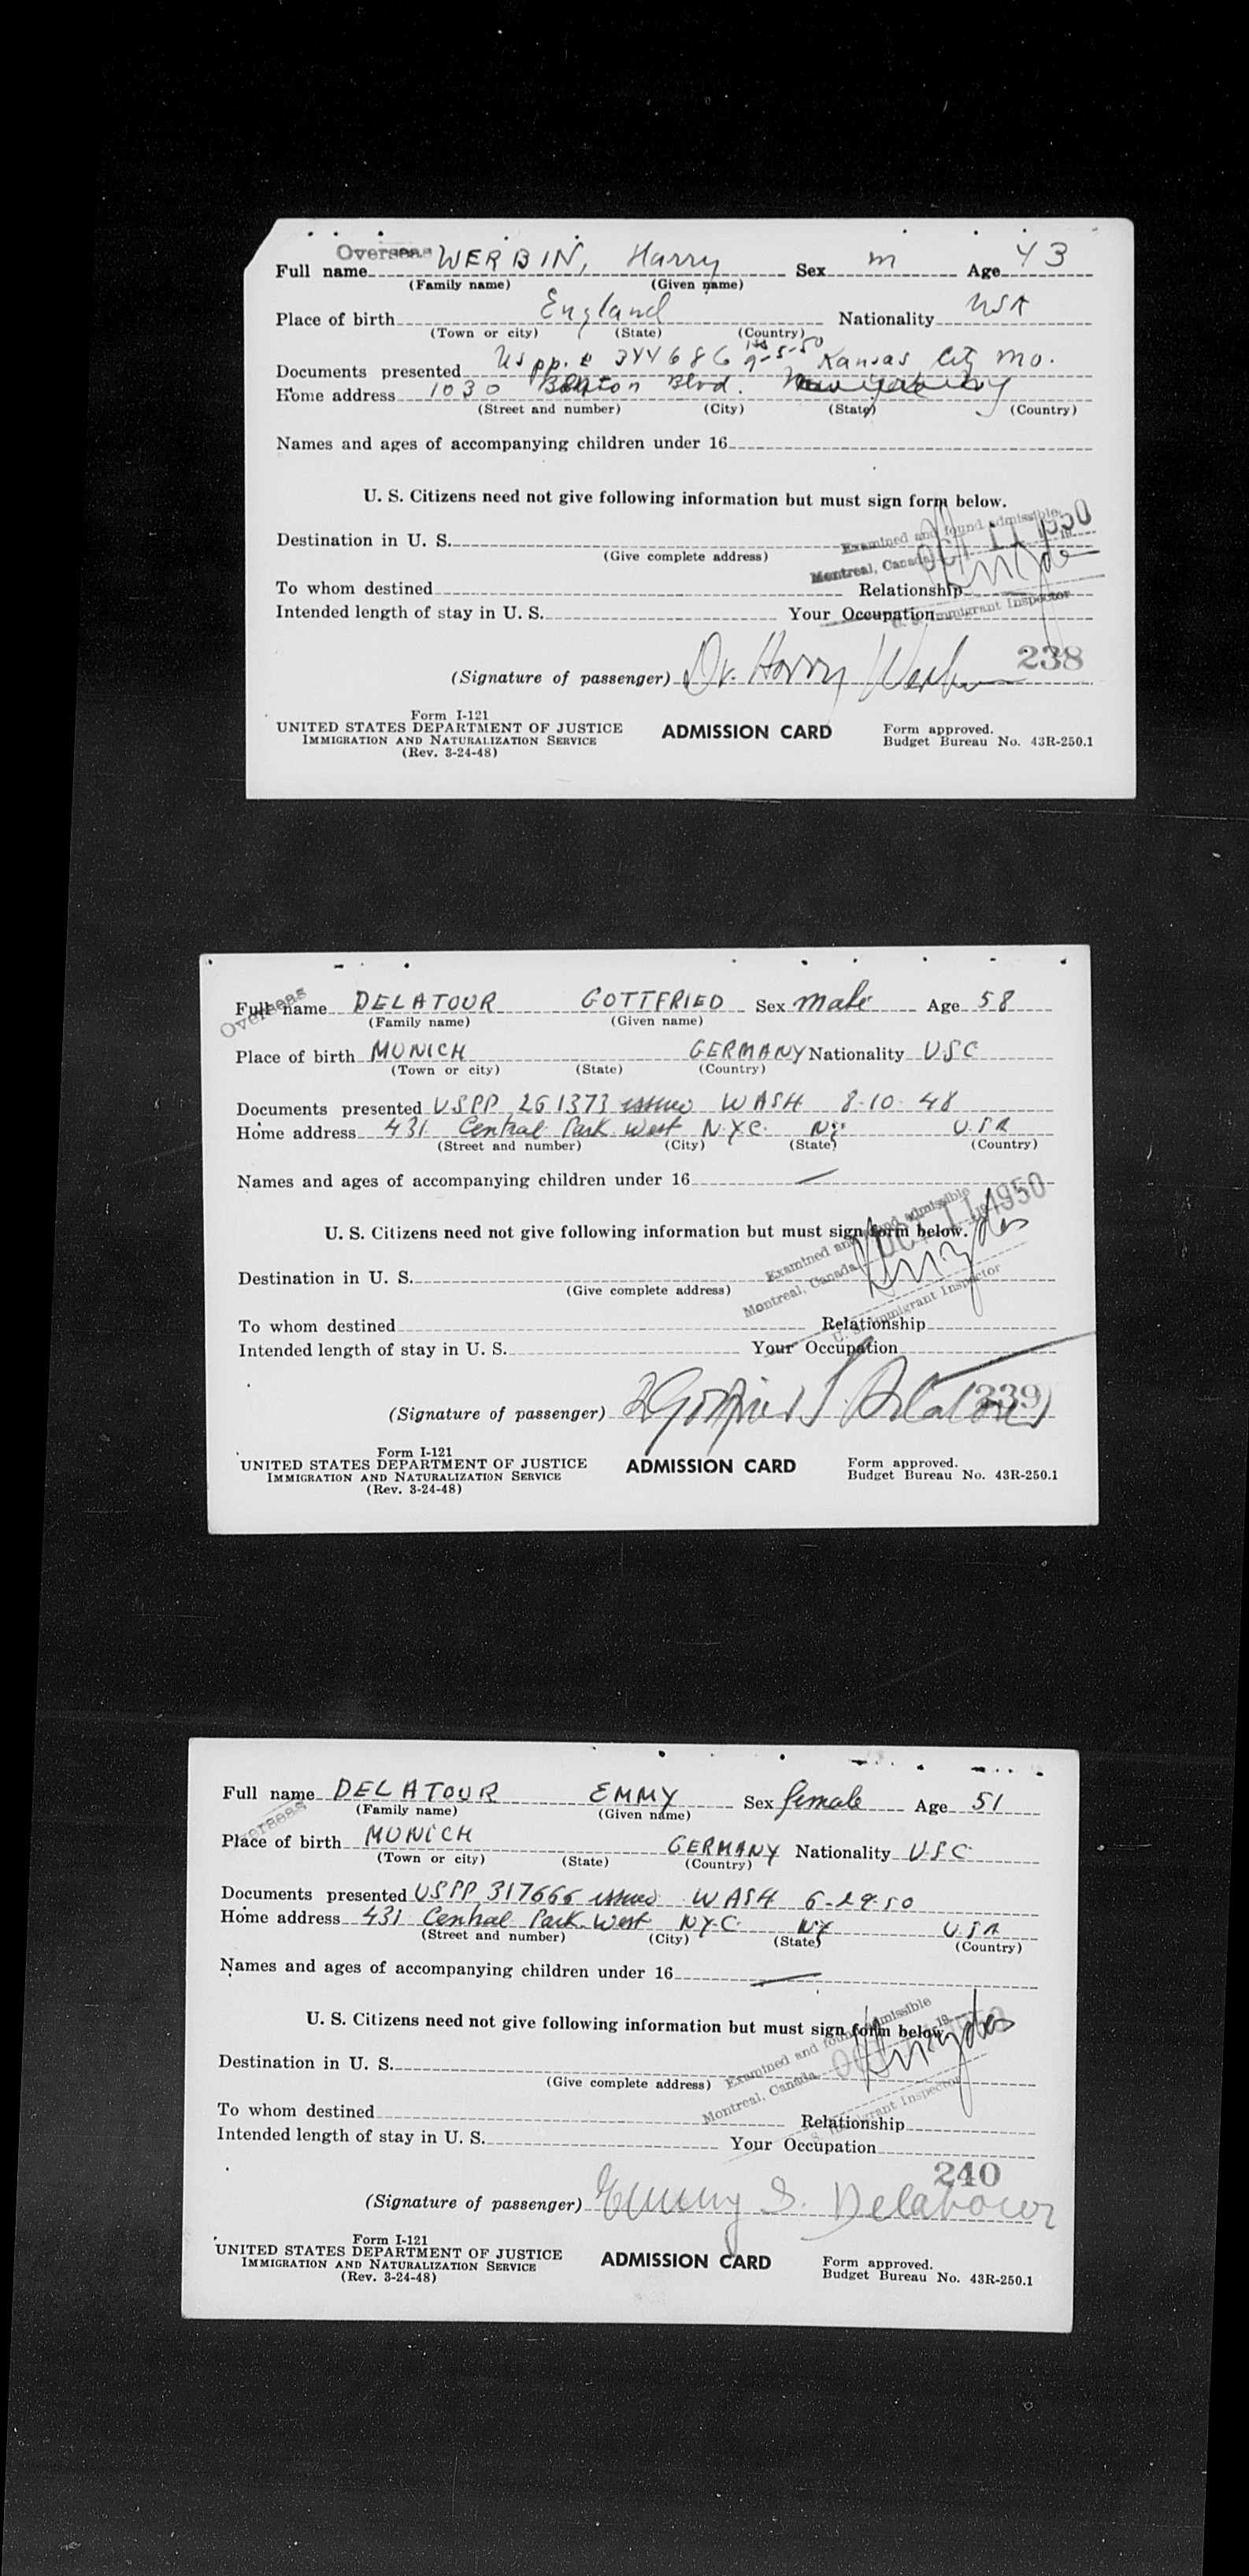 Overseas
Full name WERBIN, Harry Sex m Age 43
(Family name) (Given name)
Place of birth England Nationality USA
(Town or city) (State) (Country)
Documents presented US pp. # 344686 iss 9-5-50 Kansas City Mo.
Home address 1030 Benton Blvd.
(Street and number) (City) (State) (Country)
Names and ages of accompanying children under 16
U. S. Citizens need not give following information but must sign form below.
Examined and found admissible
Destination in U. S.
OCT 11 1950
(Give complete address)
Montreal, Canada
To whom destined Relationship
U. S. Immigrant Inspector
Intended length of stay in U. S. Your Occupation
238
(Signature of passenger) Dr. Harry Werbin
Form I-121
UNITED STATES DEPARTMENT OF JUSTICE ADMISSION CARD Form approved.
IMMIGRATION AND NATURALIZATION SERVICE Budget Bureau No. 43R-250.1
(Rev. 3-24-48)
Overseas
Full name DELATOUR GOTTFRIED Sex male Age 58
(Family name) (Given name)
Place of birth MUNICH GERMANY Nationality USC
(Town or city) (State) (Country)
Documents presented USPP 261373 issued WASH 8-10-48
Home address 431 Central Park West N.Y.C. NY USA
(Street and number) (City) (State) (Country)
Names and ages of accompanying children under 16 —
Examined and found admissible
OCT 11 1950
U. S. Citizens need not give following information but must sign form below.
Montreal, Canada
Destination in U. S.
(Give complete address)
U. S. Immigrant Inspector
To whom destined Relationship
Intended length of stay in U. S. Your Occupation
239
(Signature of passenger) Gottfried S. Delatour
Form I-121
UNITED STATES DEPARTMENT OF JUSTICE ADMISSION CARD Form approved.
IMMIGRATION AND NATURALIZATION SERVICE Budget Bureau No. 43R-250.1
(Rev. 3-24-48)
Full name DELATOUR EMMY Sex female Age 51
(Family name) (Given name)
Overseas
Place of birth MUNICH GERMANY Nationality USC
(Town or city) (State) (Country)
Documents presented USPP 317666 issued WASH 6-29-50
Home address 431 Central Park West N.Y.C. NY USA
(Street and number) (City) (State) (Country)
Names and ages of accompanying children under 16 —
Examined and found admissible
U. S. Citizens need not give following information but must sign form below.
Destination in U. S.
(Give complete address)
Montreal, Canada
U. S. Immigrant Inspector
To whom destined Relationship
Intended length of stay in U. S. Your Occupation
240
(Signature of passenger) Emmy S. Delatour
Form I-121
UNITED STATES DEPARTMENT OF JUSTICE ADMISSION CARD Form approved.
IMMIGRATION AND NATURALIZATION SERVICE Budget Bureau No. 43R-250.1
(Rev. 3-24-48)